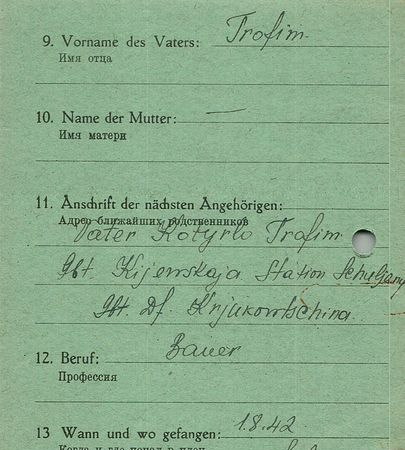 9. Vorname des Vaters: Trofim
Имя отца
10. Name der Mutter: —
Имя матери
11. Anschrift der nächsten Angehörigen:
Адрес ближайших родственников
Vater Kotyrlo Trofim
Gbt. Kijewskaja Station Schuljany
Gbt. Df. Krjukowtschina.
12. Beruf: Bauer
Профессия
13 Wann und wo gefangen: 1.8.42
Когда и где попал в плен